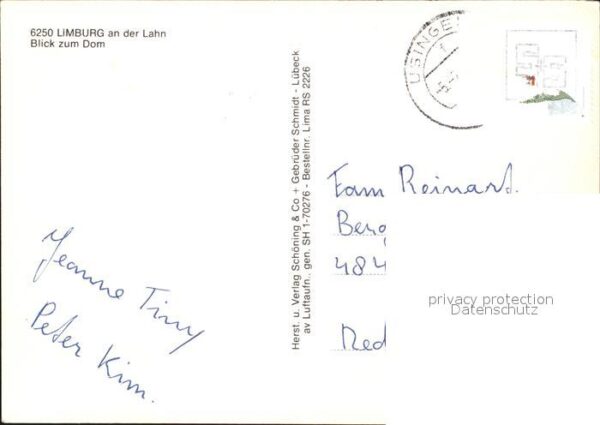 6250 LIMBURG an der Lahn
Blick zum Dom
USINGE
Herst. u. Verlag Schöning & Co + Gebrüder Schmidt - Lübeck
av Luftaufn., gen. SH 1-70276 - Bestellnr. Lima RS 2226
Fam Reinard.
Berg
484
Ned
privacy protection
Datenschutz
Jeanne Tiny
Peter Kim.